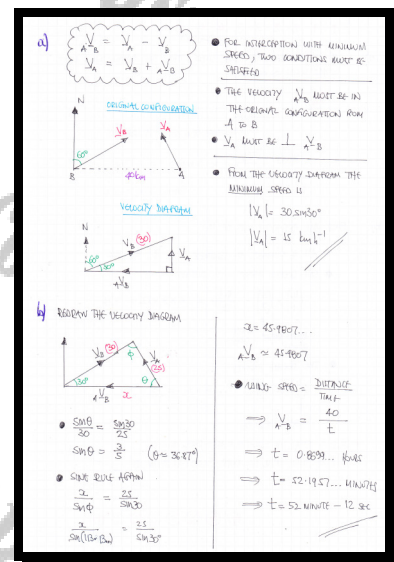 a)
AVB = VA - VB
VA = VB + AVB
ORIGINAL CONFIGURATION
N
VB
VA
60°
B
40km
A
VELOCITY DIAGRAM
N
VB (30)
VA
60°
30°
AVB
● FOR INTERCEPTION WITH MINIMUM
SPEED, TWO CONDITIONS MUST BE
SATISFIED
● THE VELOCITY AVB MUST BE IN
THE ORIGINAL CONFIGURATION FROM
A TO B
● VA MUST BE ⊥ AVB
● FROM THE VELOCITY DIAGRAM THE
MINIMUM SPEED IS
|VA| = 30 sin30°
|VA| = 15 kmh⁻¹
b) REDRAW THE VELOCITY DIAGRAM
VB (30)
ϕ
VA
(25)
30°
θ
AVB
x
● sinθ/30 = sin30/25
sinθ = 3/5 (θ≈36.87°)
● SINE RULE AGAIN
x/sinϕ = 25/sin30
= 25/sin30°
x = 45.9807...
AVB ≈ 45.9807
● USING SPEED = DISTANCE/TIME
⇒ AVB = 40/t
⇒ t = 0.8699... HOURS
⇒ t = 52.1957... MINUTES
⇒ t = 52 MINUTE - 12 SEC